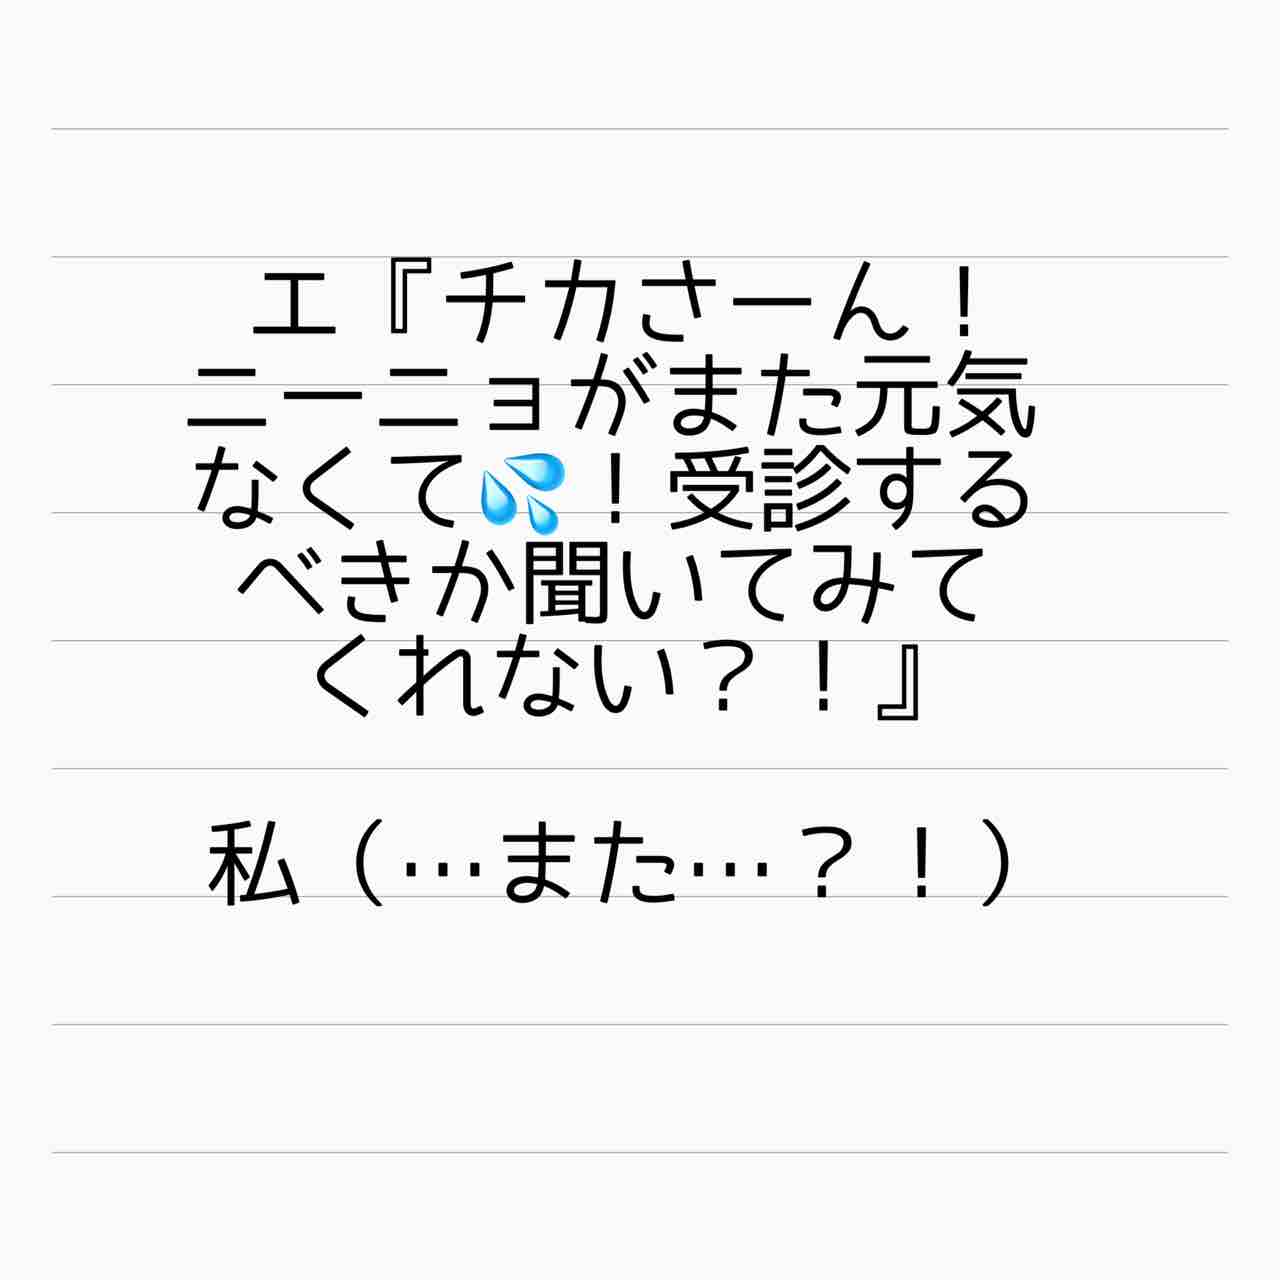 エ『チカさーん！
ニーニョがまた元気
なくて💦！受診する
べきか聞いてみて
くれない？！』
私（…また…？！）